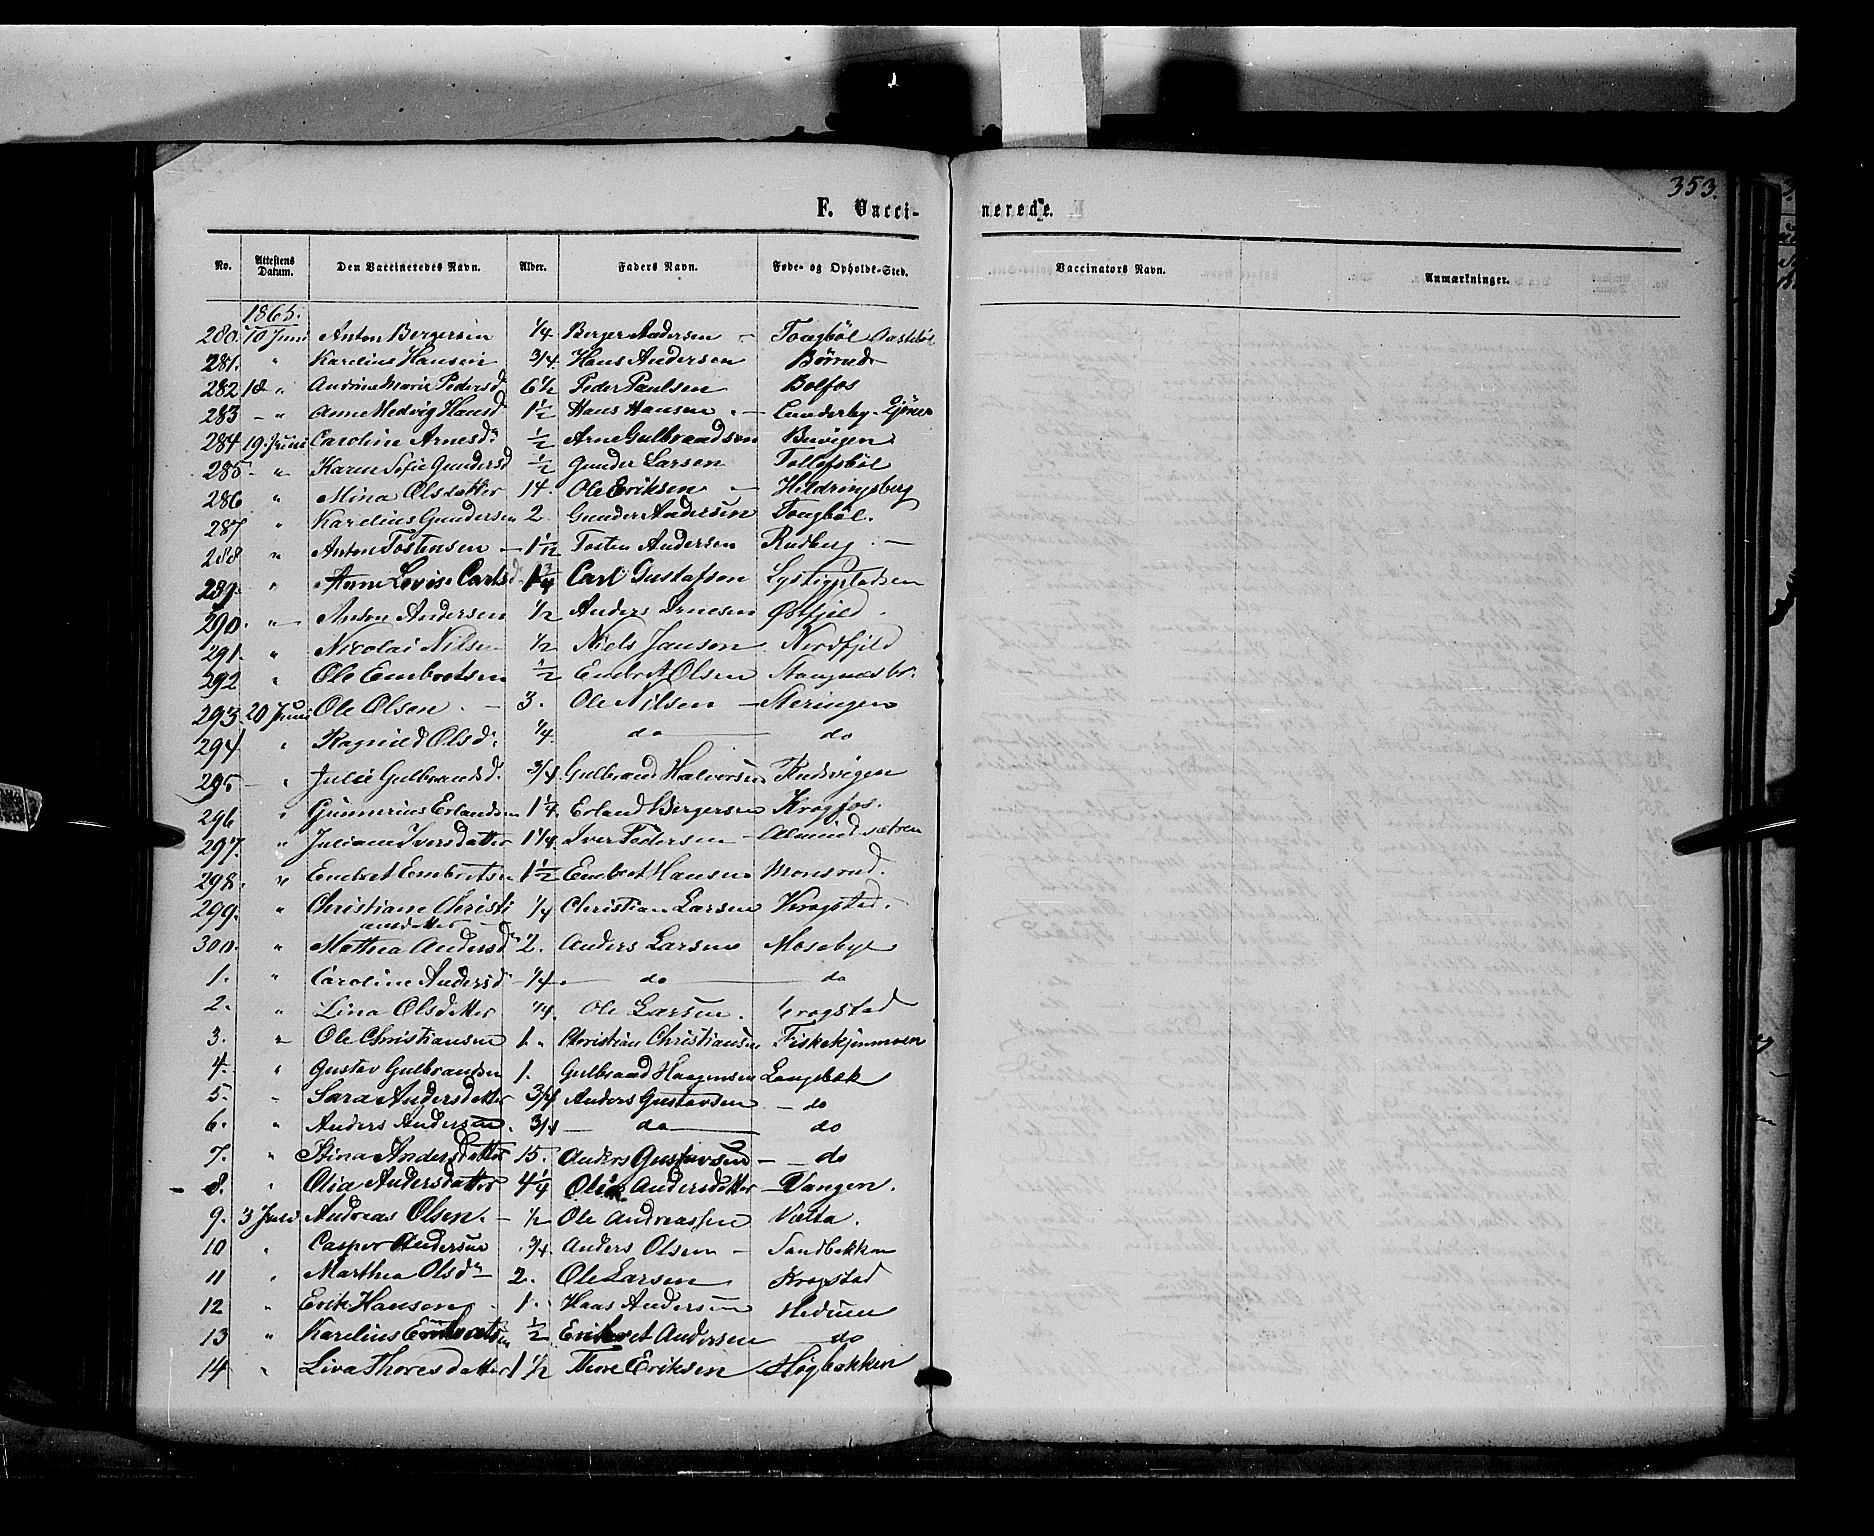 353.
F. Vacci- nerede.
No. Attestens Datum. Den Vaccineredes Navn. Alder. Faders Navn. Føde- og Opholds-Sted. Vaccinators Navn. Anmærkninger.
1865.
280. 10 Juni Anton Bergersen 1/4 Berger Andersen - Tongböl
281. " Karelius Hansen 3/4. Hans Andersen Börrud
282 18 " Andrine Marie Pedersd 6 1/2 Peder Paulsen Bolfos
283 - " Anne Hedvig Hansd 1 1/2 Hans Hansen - Lunderby
284 19. Juni Caroline Arnesdr 1/2 Arne Gulbrandsen Buvigen
285 - " Karen Sofie Gundersd 1/2 Gunder Larsen Tollefsböl
286 " Mina Olsdatter 14. Ole Eriksen - Hildringsberg
287 " Karelius Gundersen 2. Gunder Andersen Tongböl.
288 " Anton Tostensen - 1 1/2 Tosten Andersen Rudberg -
289. " Anne Lovise Carlsd. 1 3/4 Carl Gustafsen Lystigpladsen
290. " Anton Andersen 1/2 Anders Arnesen Østfjeld.
291. " Nicolai Nilsen 1/2 Niels Jansen Nordfjeld
292 " Ole Embretsen 1/2 Embret Olsen Stangnæsbr.
293. 20 Juni Ole Olsen - 3. Ole Nilsen - Steringen
294 " Ragnild Olsdr 1/4. do do
295 - " Julie Gulbrandsd. 3/4. Gulbrand Halvorsen
296 " Gunnerius Erlandsen 1 1/4. Erland Bergersen Krogfos.
297. " Juliane Iversdatter 1 1/4. Iver Pedersen - Almindsætren
298. " Embret Embretsen 1 1/2 Embret Hansen Monsrud.
299. " Christiane Christi 1/4 Christian Larsen Krogstad.
ansdatter
300. " Mathea Andersdr 2. Anders Larsen Mosebye
1. " Caroline Andersd - 1/4. do do
2. " Lina Olsdatter 1/4. Ole Larsen. Krogstad
3. " Ole Christiansen 1. " Christian Christiansen Fiskekjinmoen
4. " Gustav Gulbrandsen 1. Gulbrand Haagensen Langbæk
5. " Sara Andersdatter 3/4 Anders Gustavsen - do
6. " Anders Andersen. 3/4 do do
7. " Stina Andersdatter 15. Anders Gustavsen - do
8. " Olia Andersdatter 4 1/4 Andersdatter - Vangen.
9. 3 Juli Andreas Olsen. - 1/2 Ole Andreassen Valta.
10 " Casper Andersen 3/4. Anders Olsen - Sandbakken
11 " Marthea Olsdr 2. Ole Larsen Krogstad
12 " Erik Hansen - 1. Hans Andersen
13 " Karelius Embretsen 1/2 Embret Andersen do
14 " Liva Thoresdatter 1 1/2 Thore Eriksen Høgbakken